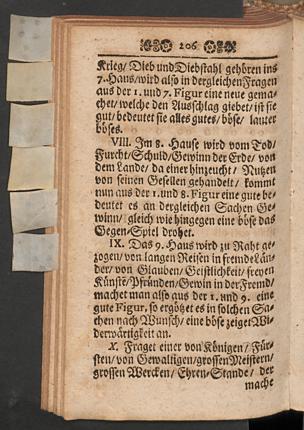 206
Krieg/ Dieb und Diebstahl gehören ins
7. Haus/ wird also in dergleichen Fragen
aus der 1. und 7. Figur eine neue gema-
chet/ welche den Ausschlag giebet/ ist sie
gut/ bedeutet sie alles gutes/ böse/ lauter
böses.
VIII. Im 8. Hause wird vom Tod/
Furcht/ Schuld/ Gewinn der Erde/ von
dem Lande/ da einer hinzeucht/ Nutzen
von seinen Gesellen gehandelt/ kommt
nun aus der 1. und 8. Figur eine gute be-
deutet es an dergleichen Sachen Ge-
winn/ gleich wie hingegen eine böse das
Gegen-Spiel drohet.
IX. Das 9. Haus wird zu Raht ge-
zogen/ von langen Reisen in fremde Län-
der/ von Glauben/ Geistlichkeit/ freyen
Künste/ Pfründen/ Gewin in der Fremd/
machet man also aus der 1. und 9. eine
gute Figur, so ergötzet es in solchen Sa-
chen nach Wunsch/ eine böse zeiget Wi-
derwärtigkeit an.
X. Fraget einer von Königen/ Für-
sten/ von Gewaltigen/ grossen Meistern/
grossen Wercken/ Ehren-Stande/ der
mache